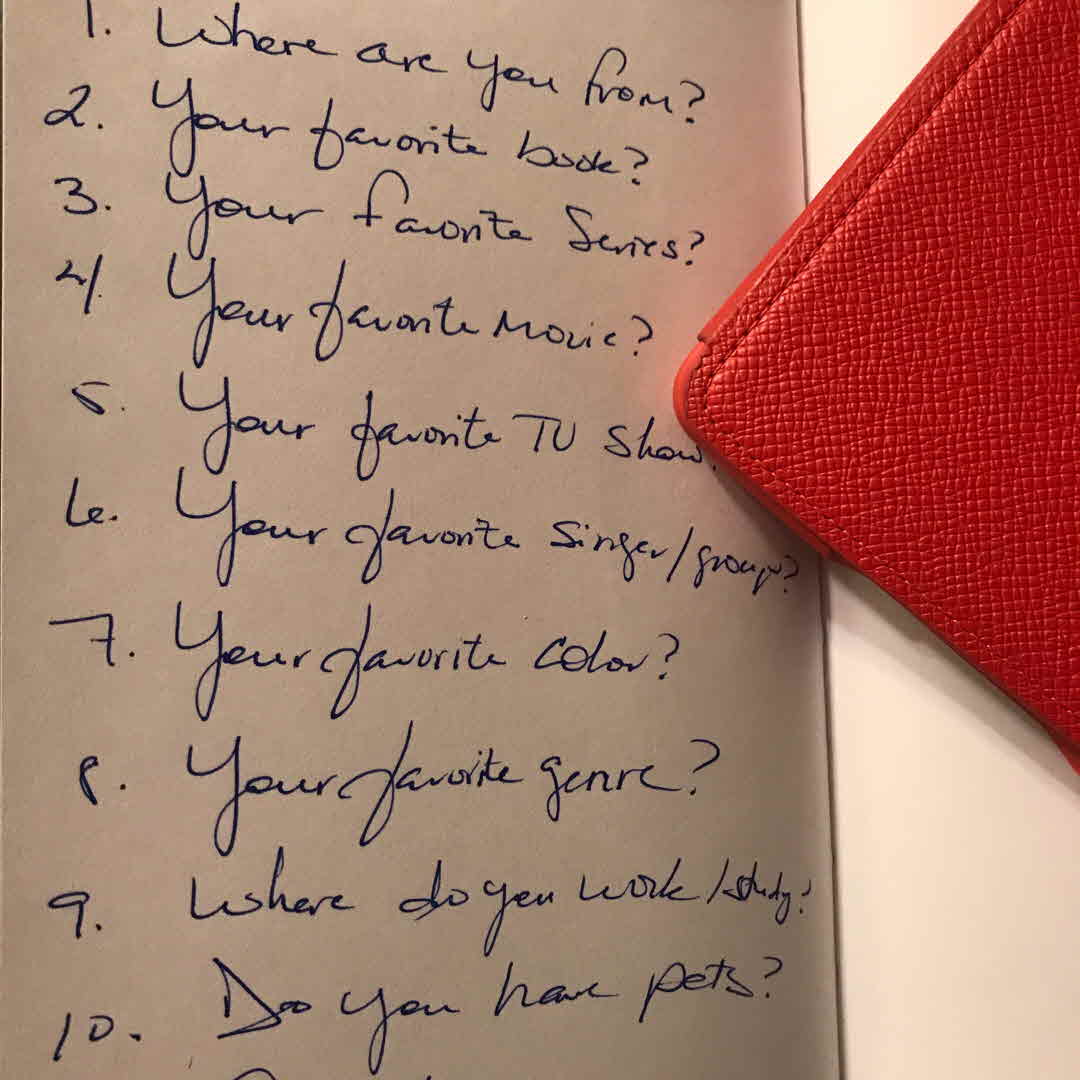 1. Where are you from?
2. Your favorite book?
3. Your favorite Series?
4. Your favorite Movie?
5. Your favorite TV Show
6. Your favorite Singer/group?
7. Your favorite color?
8. Your favorite genre?
9. Where do you work/study?
10. Do you have pets?